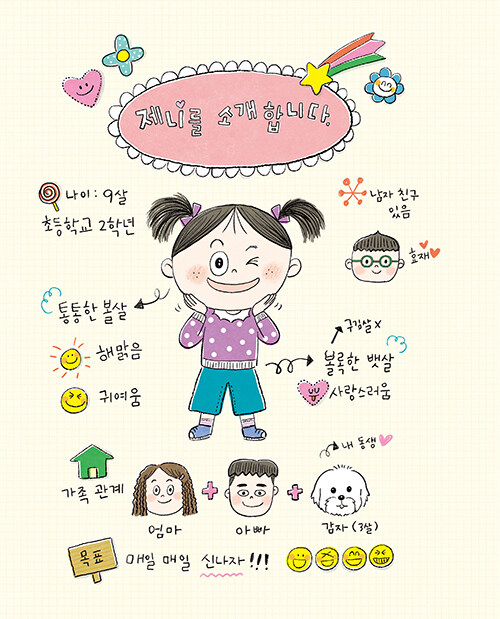 제니를 소개합니다.
나이 : 9살
초등학교 2학년
남자 친구
있음
효재
통통한 볼살
해맑음
귀여움
구김살 X
볼록한 뱃살
사랑스러움
내 동생
가족 관계
엄마
아빠
감자 (3살)
목표
매일 매일 신나자!!!